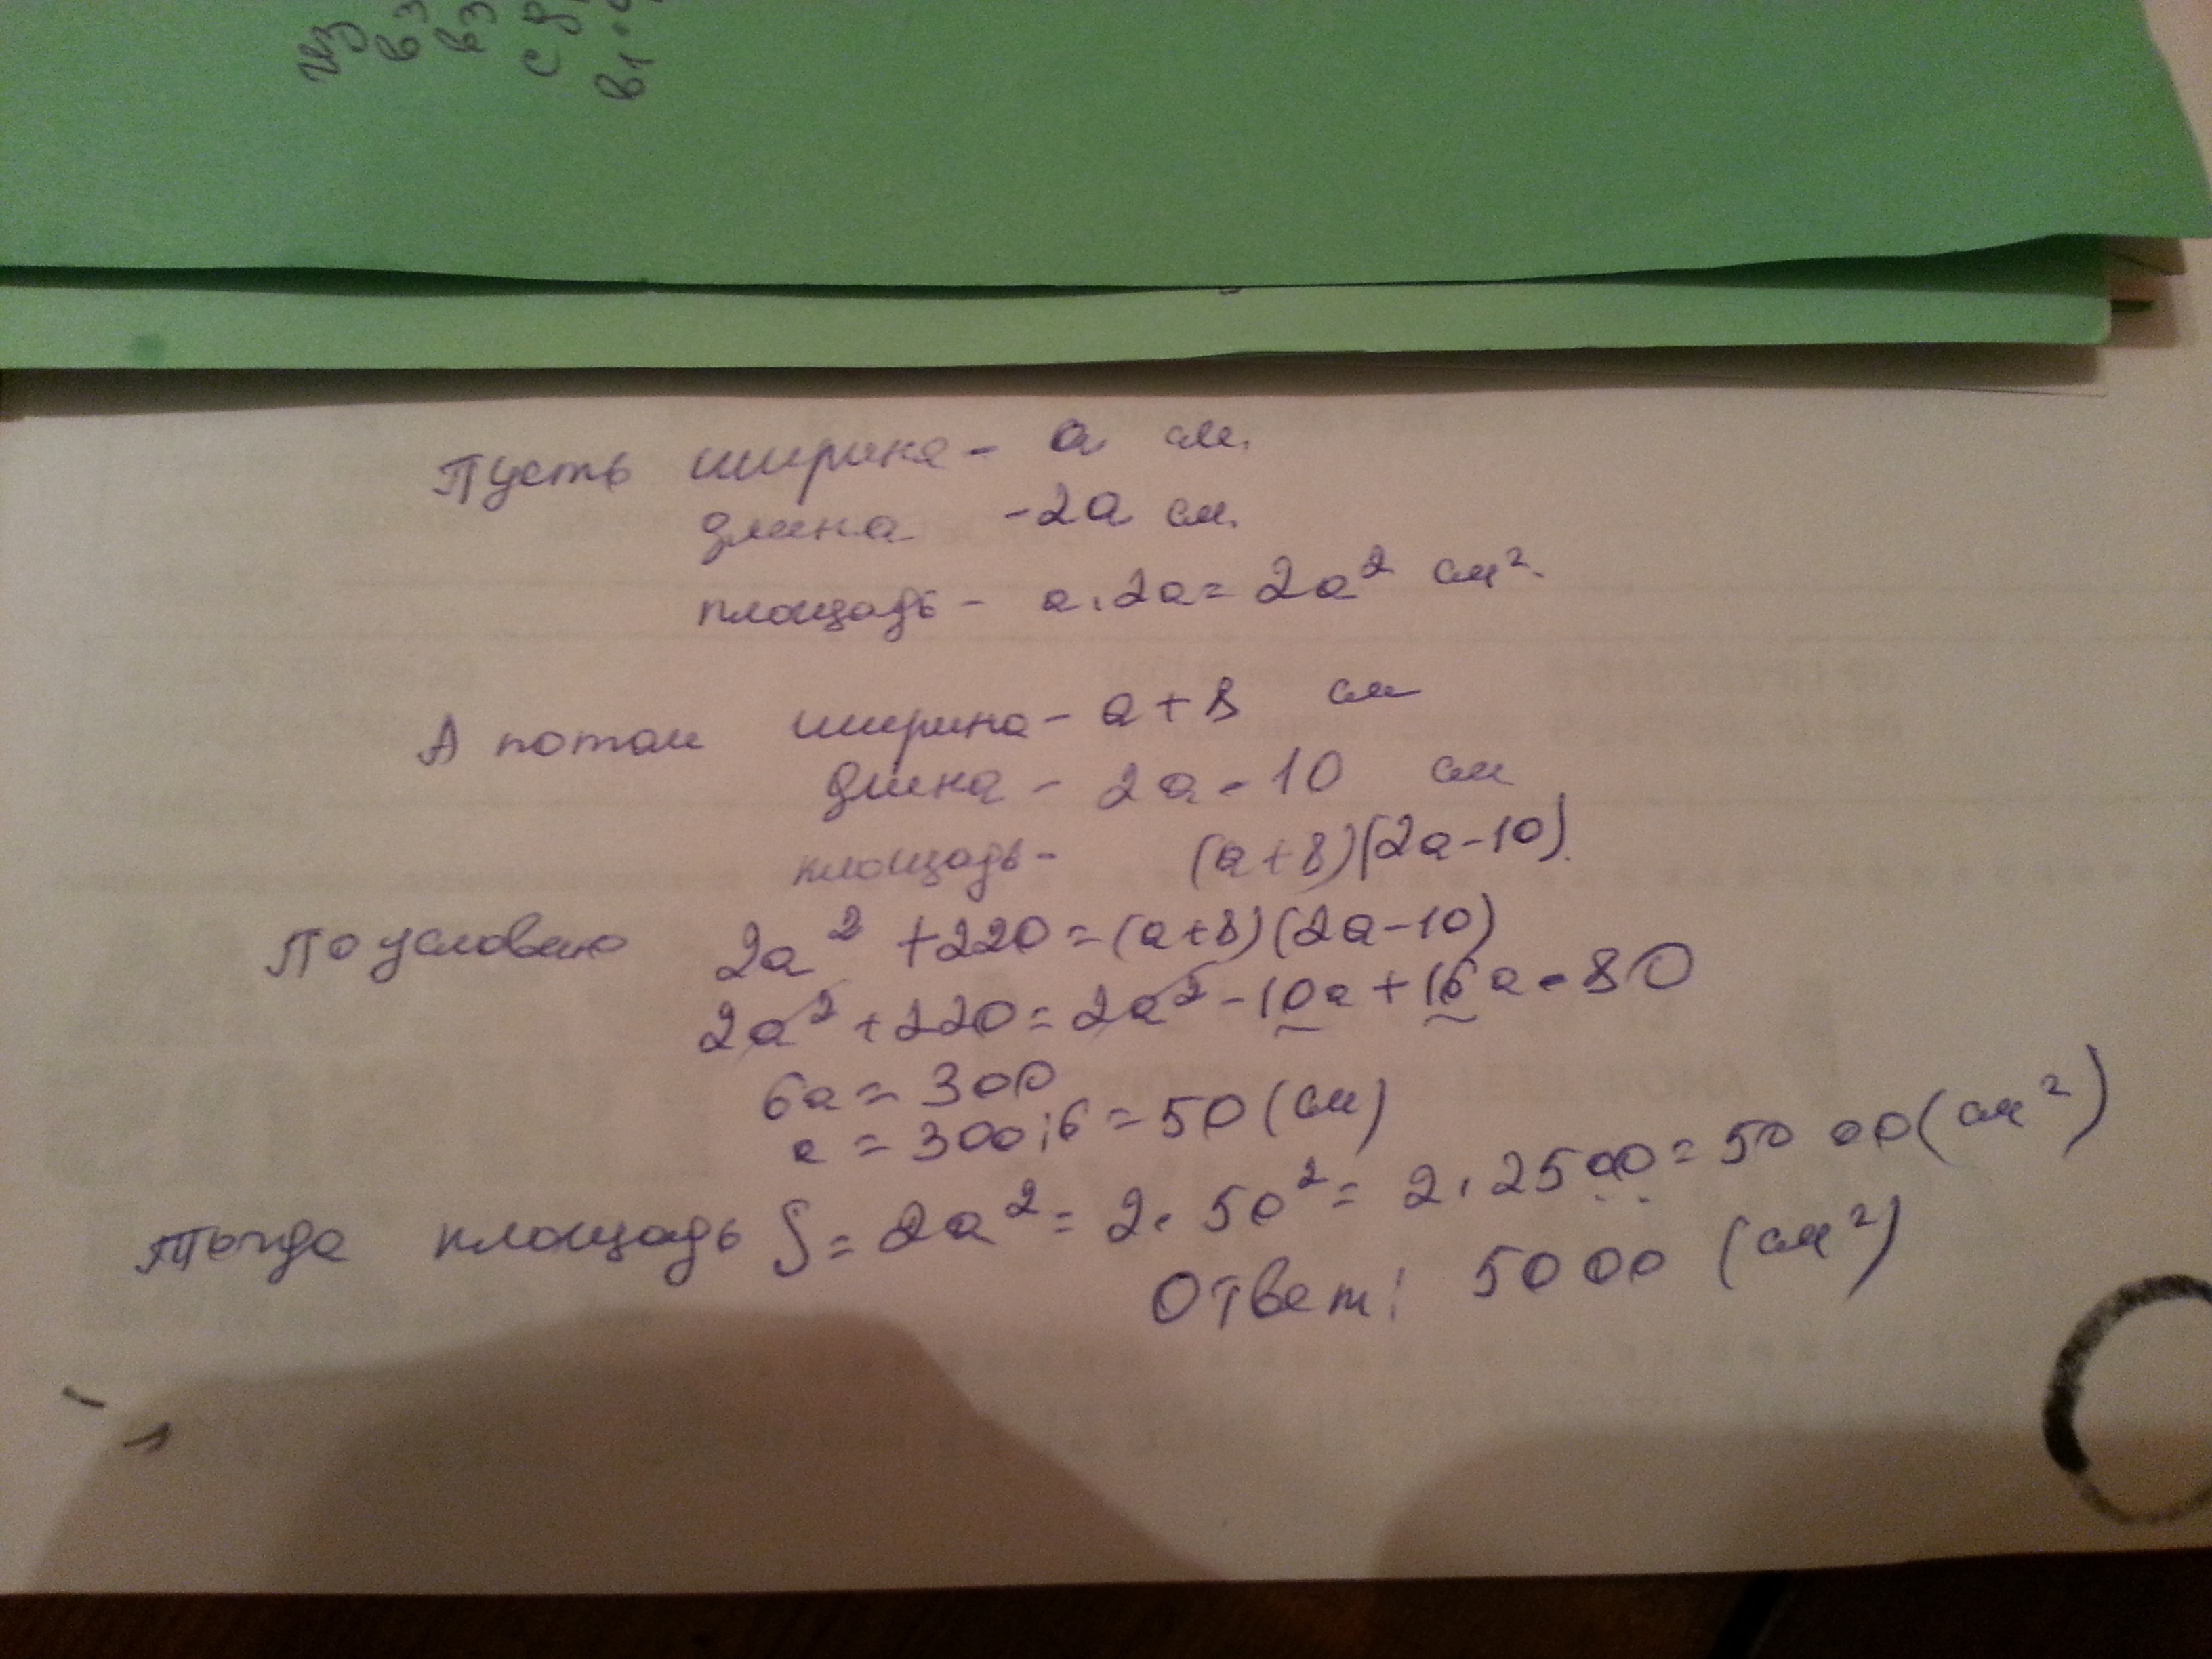 Пусть ширина - а см.
длина - 2а см.
площадь - а . 2а = 2а² см².
А потом ширина - а + 8 см
длина - 2а - 10 см
площадь - (а+8)(2а-10).
По условию 2а² + 220 = (а+8)(2а-10)
2а² + 220 = 2а² - 10а + 16а - 80
6а = 300
а = 300:6 = 50 (см)
Тогда площадь S = 2а² = 2 . 50² = 2 . 2500 = 5000 (см²)
Ответ: 5000 (см²)